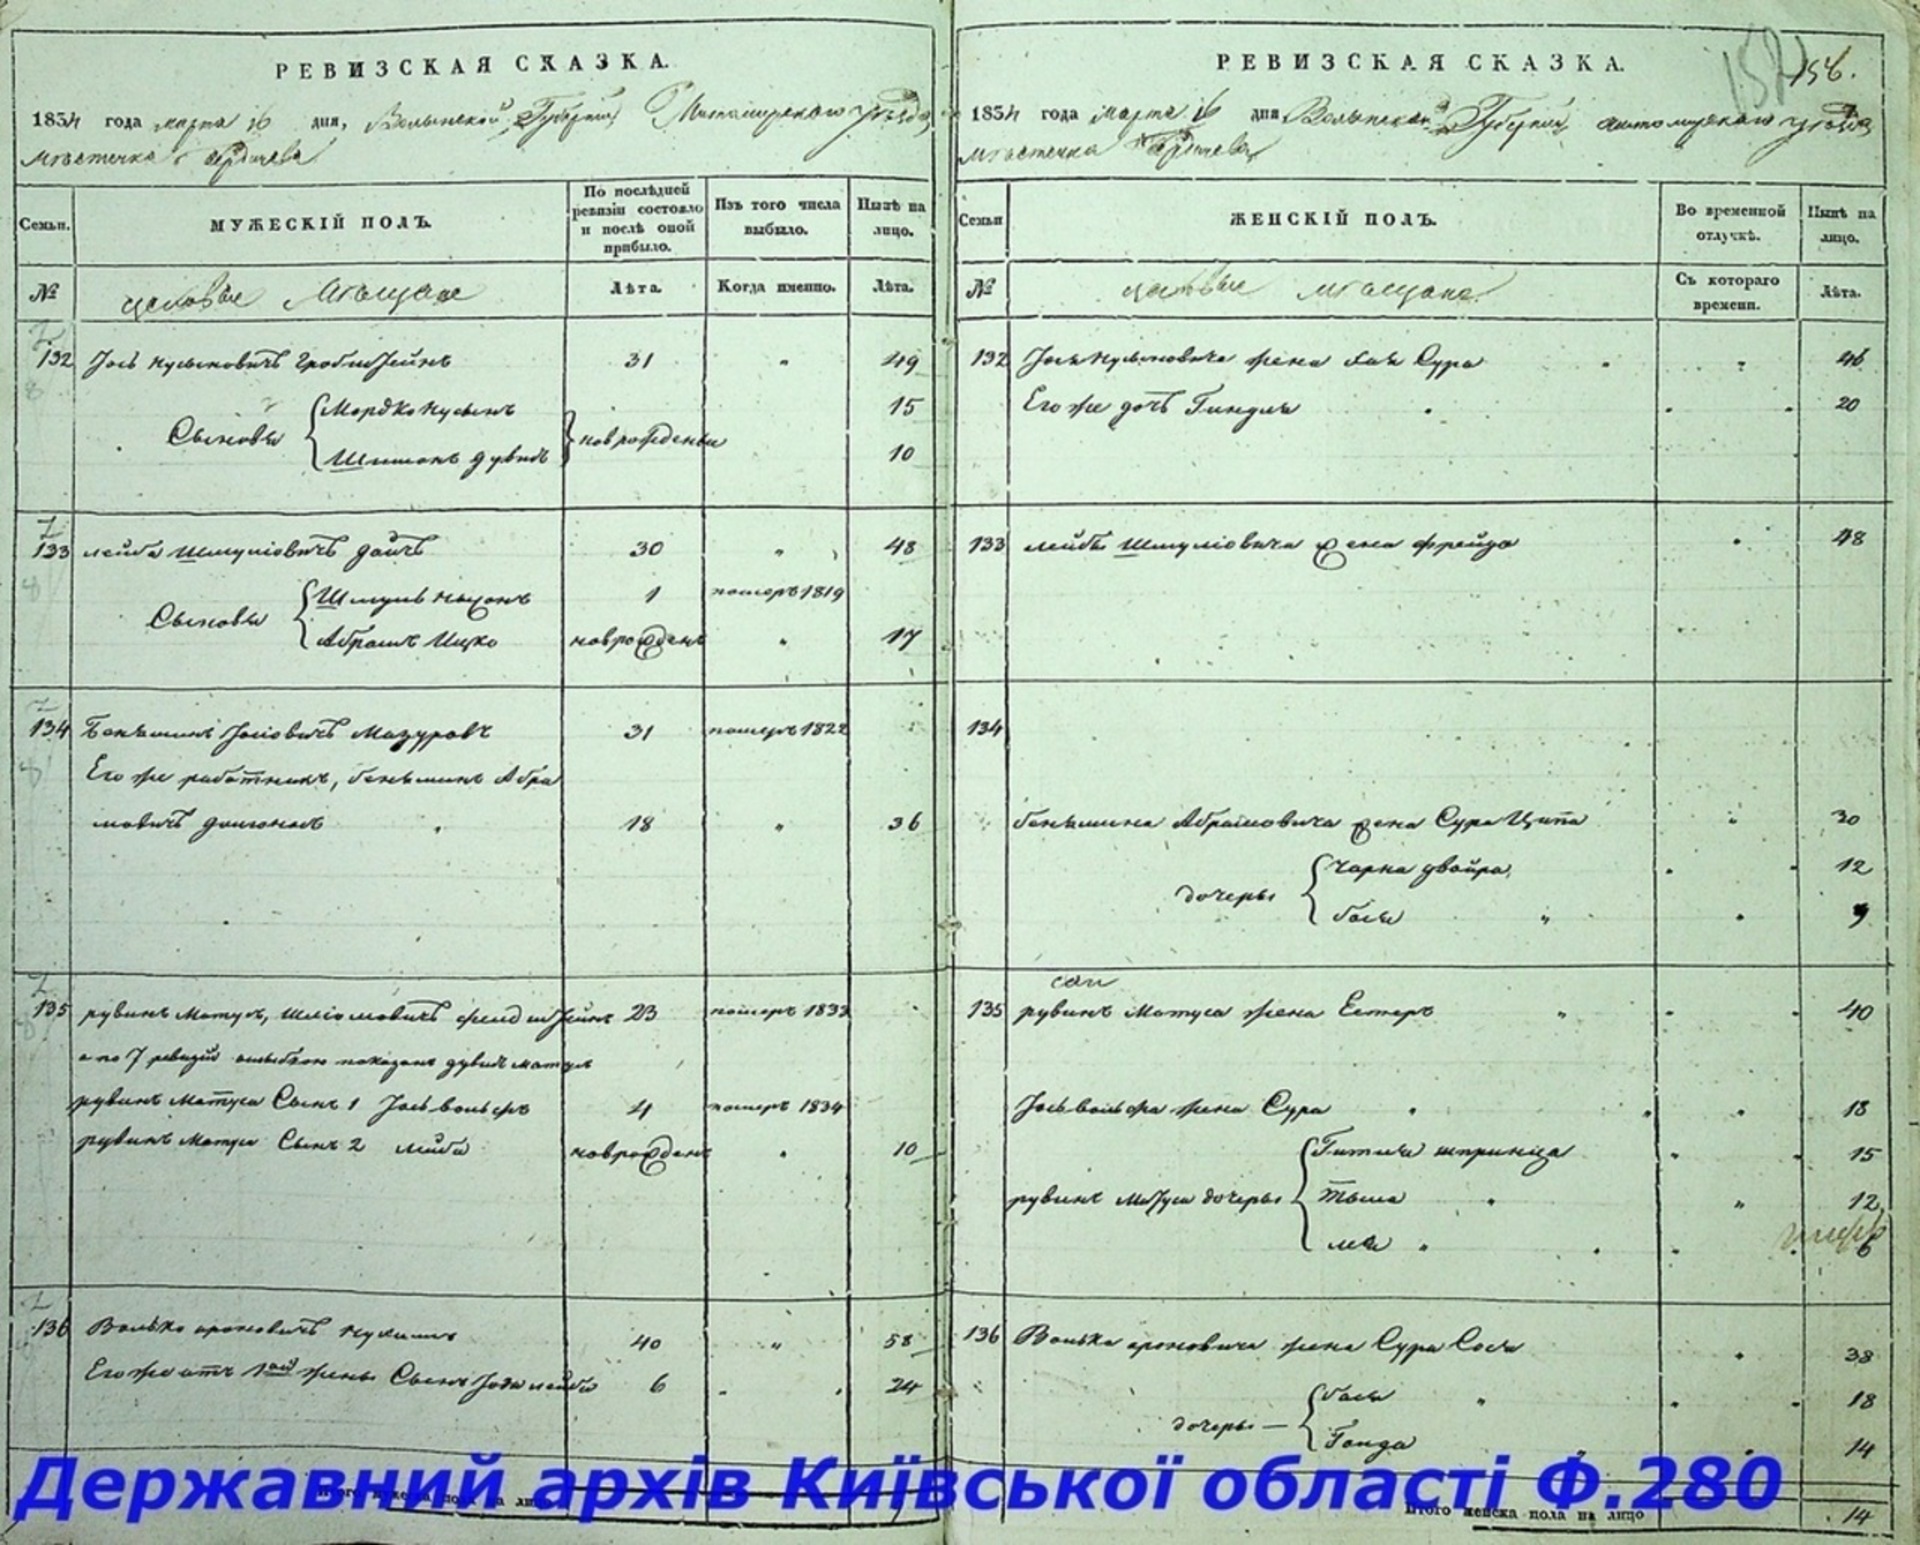 РЕВИЗСКАЯ СКАЗКА.
1834 года марта 16 дня, Волынской Губернии Житомирского уезда
местечка Бердичева
Семьи.
МУЖЕСКІЙ ПОЛЪ.
По послѣдней ревизіи состояло и послѣ оной прибыло.
Изъ того числа выбыло.
Нынѣ на лицо.
№
цеховые Мещане
Лѣта.
Когда именно.
Лѣта.
132 Іось Нусыновичъ 31 " 49
Сыновья
Мордко Нусынъ 15
новрожденны
Шимонъ Дувидъ 10
133 Лейба Шмуліовичъ Дойчъ 30 " 48
Сыновья
Шмуль Нахонъ 1 померъ 1819
Абрамъ Ицко новрожденъ " 17
134 Беньминъ Іосіовичъ Мазуровъ 31 померъ 1822
Его же работникъ, беньминъ Абра
мовичъ 18 " 36
135 рувинъ Матусъ, Шліомовичъ фелдштейнъ 23 померъ 1833
а по 7 ревизіи ошибкою показанъ дувидъ матусъ
рувинъ Матуса Сынъ 1 Іось вольфъ 4 померъ 1834
рувинъ Матуса Сынъ 2 лейба новрожденъ " 10
136 Волько ароновичъ 40 " 58
Его же отъ 1ой жены Сынъ лейба 6 " 24
РЕВИЗСКАЯ СКАЗКА.
156.
1834 года марта 16 дня Волынской Губернии Житомирского уезда
местечка Бердичева
Семьи
ЖЕНСКІЙ ПОЛЪ.
Во временной отлучкѣ.
Нынѣ на лицо.
№
цеховые мещане
Съ котораго времени.
Лѣта.
132 Іось Нусыновича жена Хая Сура " 46
Его же дочь Гиндля 20
133 лейбы Шмуліовича жена фрейда " 48
134
беньмина Абрамовича жена Сура Ципа " 30
дочеры
Чарна двойра 12
бася " 9
135 рувинъ Матуса жена Естеръ " 40
Іось вольфа жена Сура 18
Гителя шпринца 15
рувинъ Матуса дочеры
Тыша " 12
лея " 6
136 Волька ароновича жена Сура Сося " 38
бася " 18
дочеры —
Гольда " 14
Итого мужеска пола на лицо
Итого женска пола на лицо 14
Державний архів Київської області Ф.280